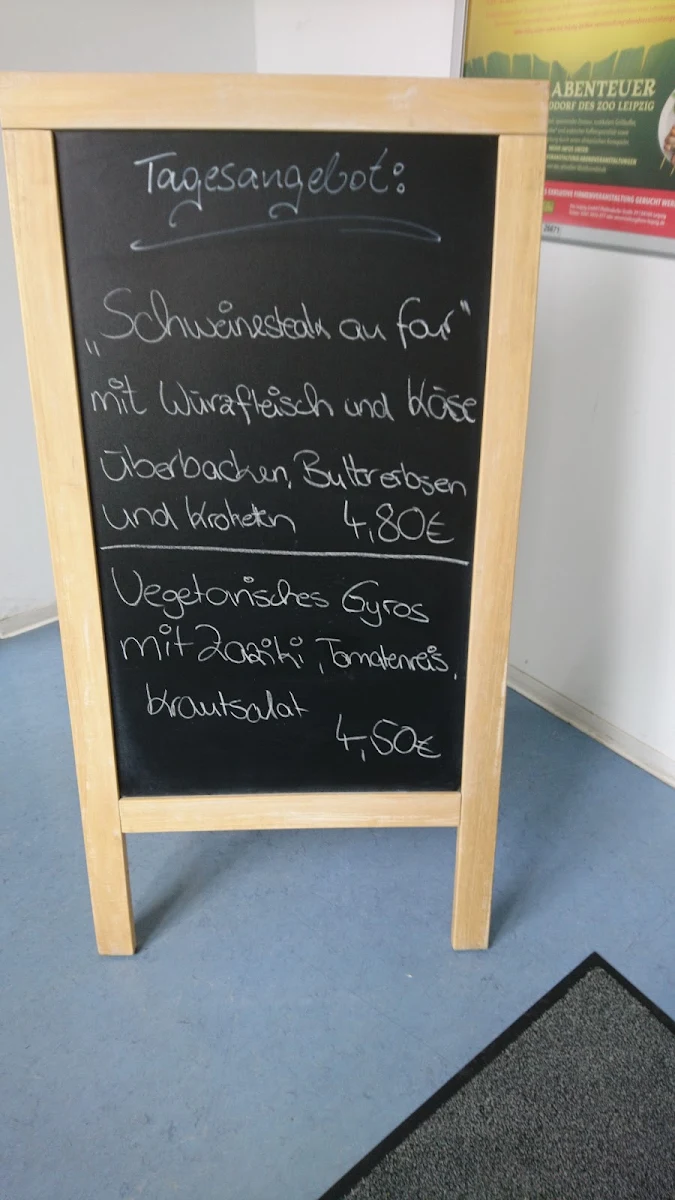 Tagesangebot:
„Schweinesteak au four"
mit Würzfleisch und Käse
überbacken, Buttererbsen
und Kroketten 4,80€
Vegetarisches Gyros
mit Zaziki, Tomatenreis,
Krautsalat
4,50€
ABENTEUER
DORF DES ZOO LEIPZIG